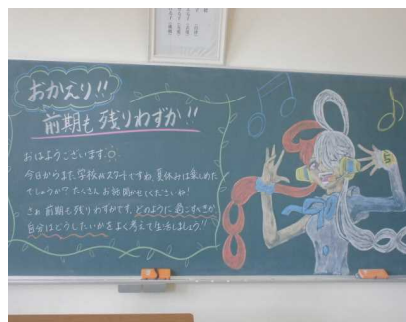 おかえり!!
前期も残りわずか!!
おはようございます。
今日からまた、学校がスタートですね。夏休みは楽しめた
でしょうか?たくさんお話聞かせてくださいね!
さぁ前期も残りわずかです。どのように過ごすべきか
自分はどうしたいかをよく考えて生活しましょう!!